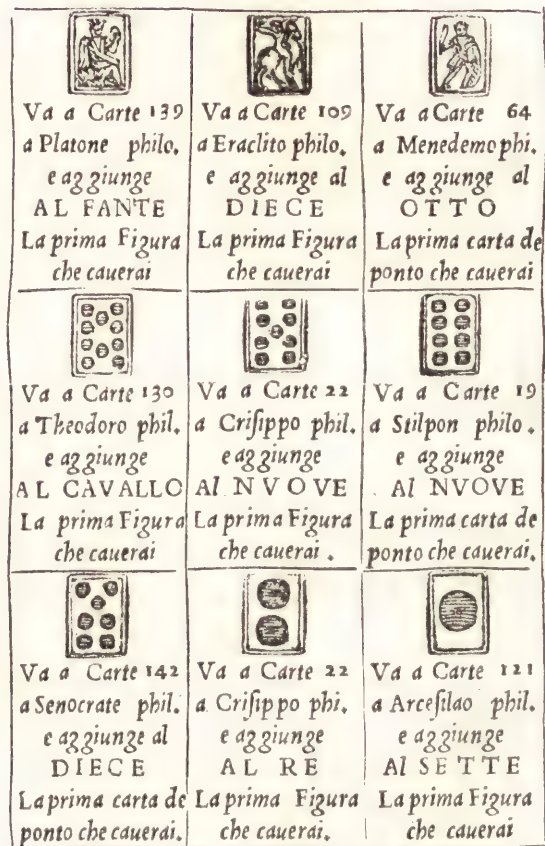 Va a Carte 139
a Platone philo.
e aggiunge
AL FANTE
La prima Figura
che cauerai
Va a Carte 109
a Eraclito philo.
e aggiunge al
DIECE
La prima Figura
che cauerai
Va a Carte 64
a Menedemo phi.
e aggiunge al
OTTO
La prima carta de
ponto che cauerai
Va a Carte 130
a Theodoro phil.
e aggiunge
AL CAVALLO
La prima Figura
che cauerai
Va a Carte 22
a Criſippo phil.
e aggiunge
Al NVOVE
La prima Figura
che cauerai .
Va a Carte 19
a Stilpon philo .
e aggiunge
Al NVOVE
La prima carta de
ponto che cauerai.
Va a Carte 142
a Senocrate phil.
e aggiunge al
DIECE
La prima carta de
ponto che cauerai.
Va a Carte 22
a Criſippo phi.
e aggiunge
AL RE
La prima Figura
che cauerai.
Va a Carte 121
a Arceſilao phil.
e aggiunge
Al SETTE
La prima Figura
che cauerai